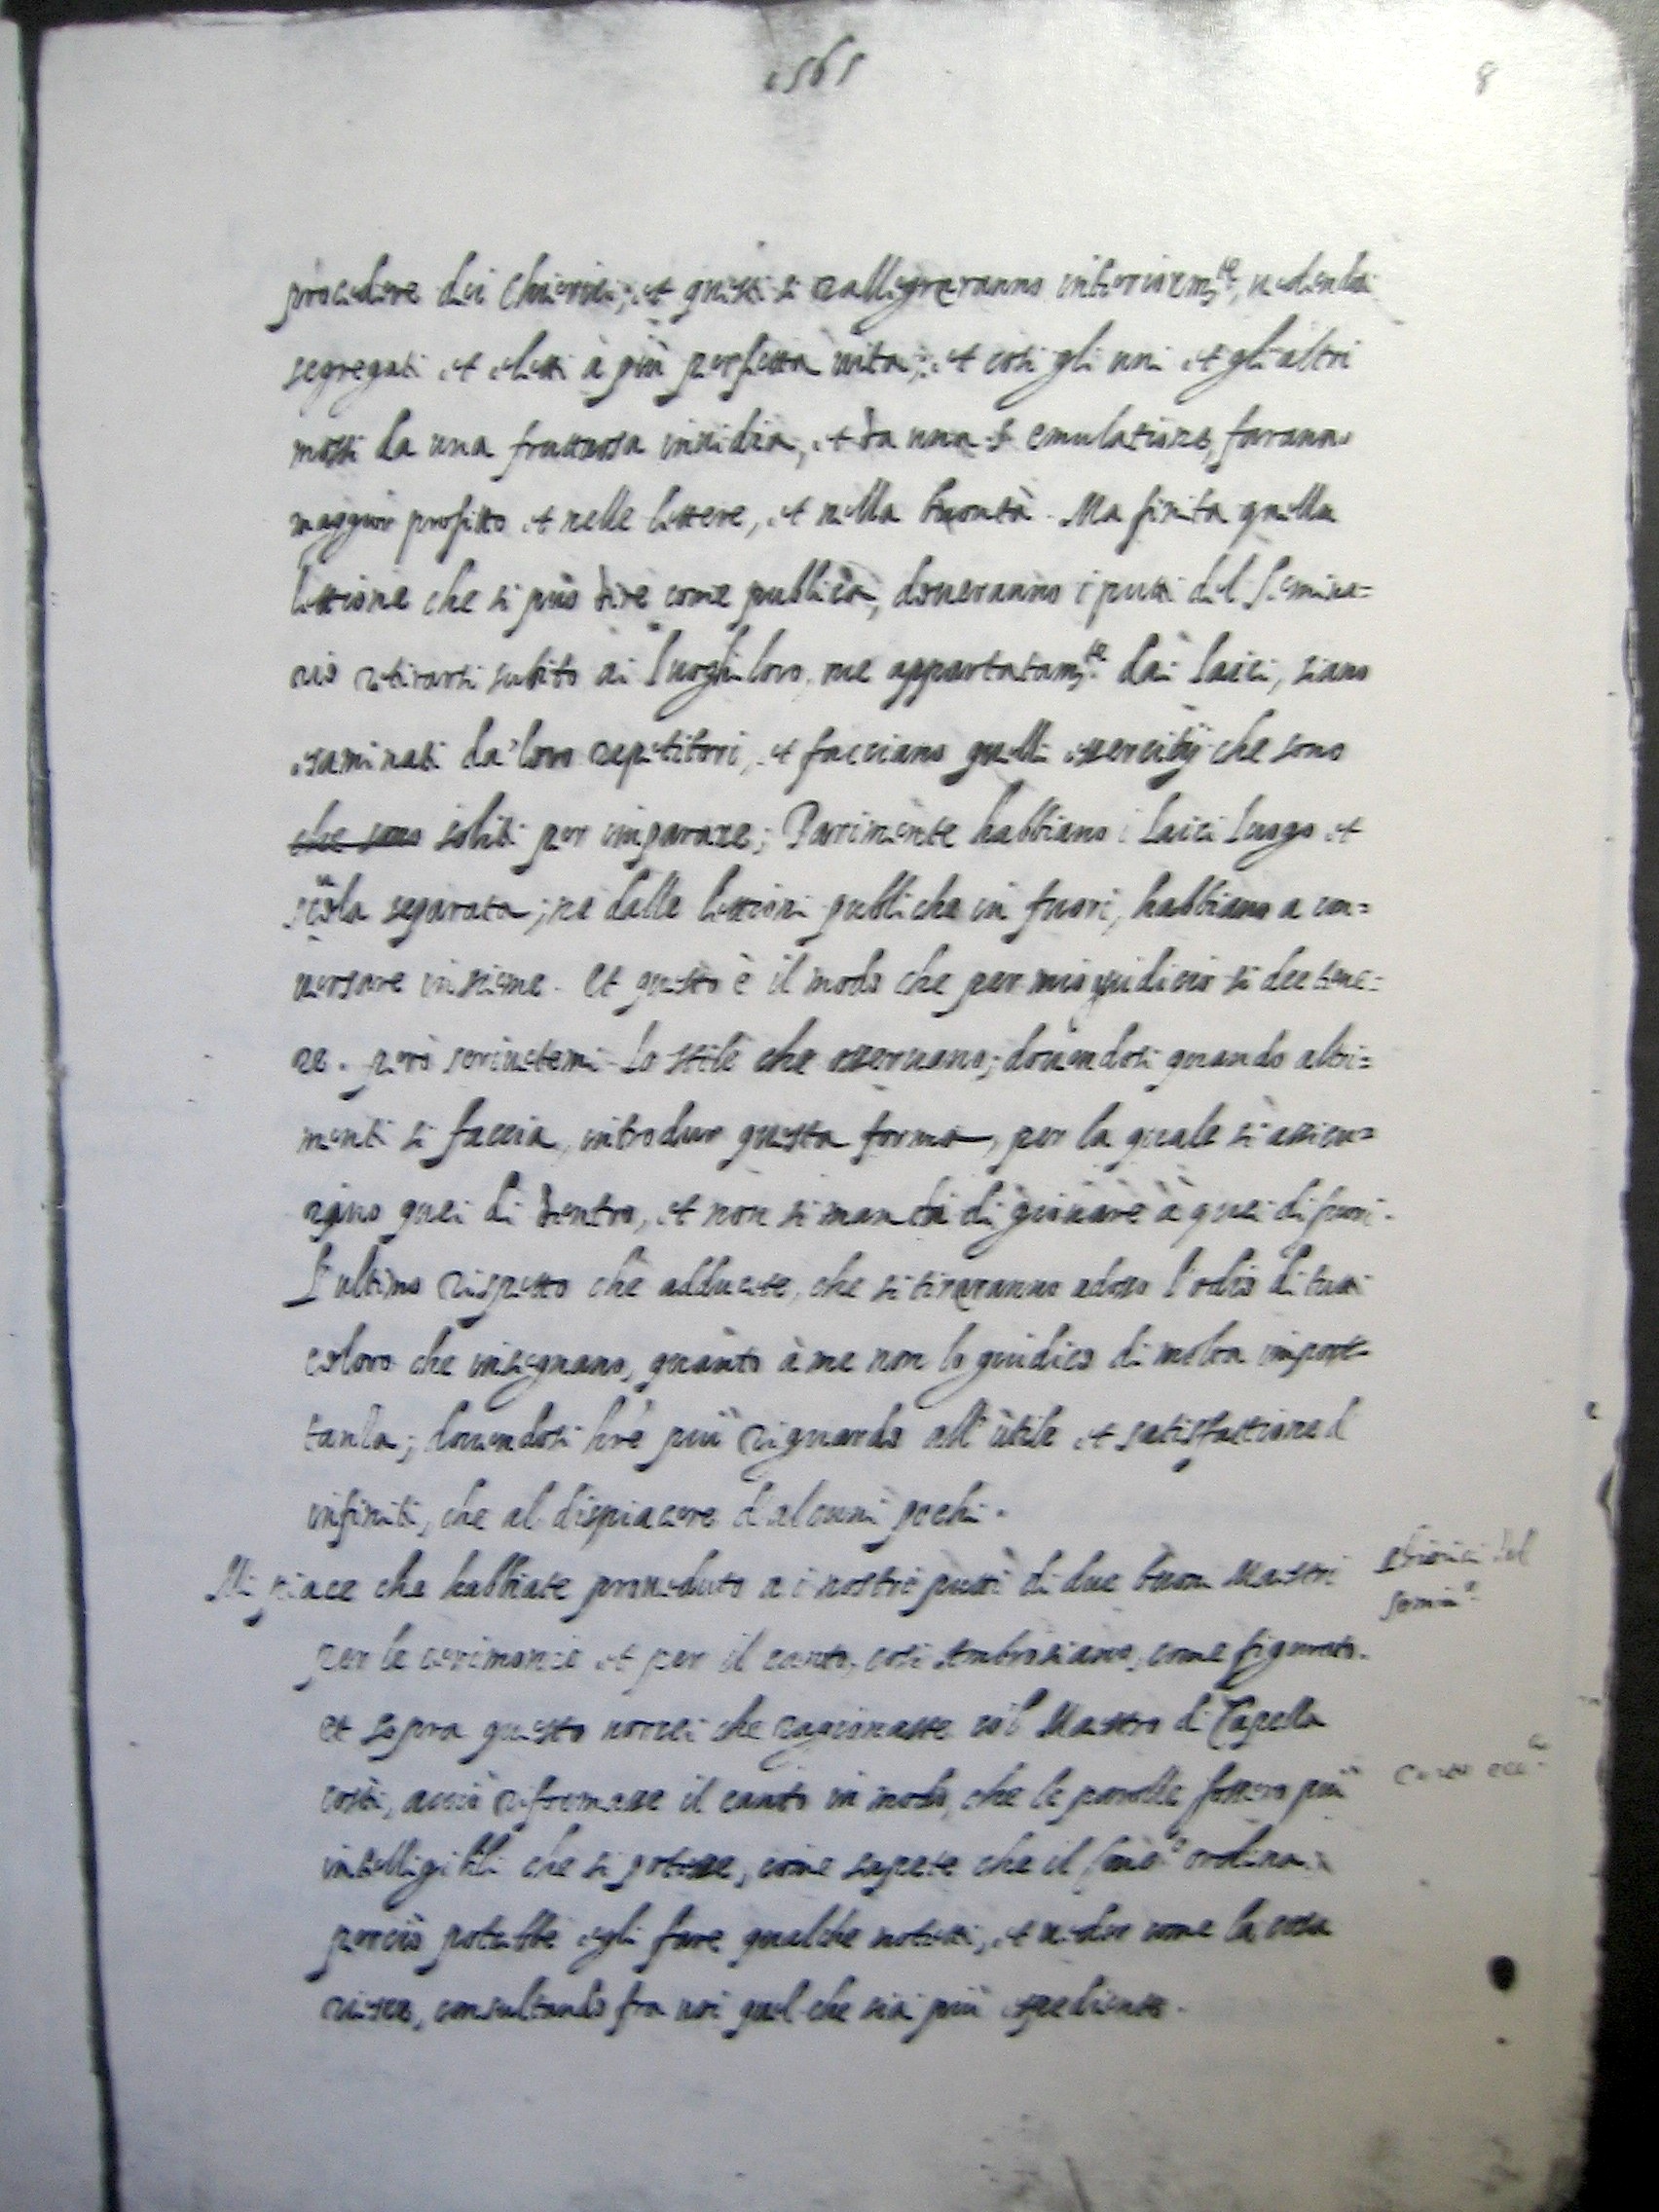 1565
8
procedere dei Chierici; et questi si rallegreranno interiorm.te, vedendosi
segregati et eletti à più perfetta vita; et così gli uni et gli altri
mossi da una fruttuosa invidia, et da una s. emulatione, faranno
maggior profitto et nelle lettere, et nella buontà. Ma finita quella
lettione che si può dire come publica, doveranno i putti del Semina=
rio retirarsi subito ai luoghi loro, ove appartatam.te dai laici, siano
esaminati da' loro repetitori, et facciano quelli essercitij che sono
che sono soliti per imparare; Parimente habbiano i laici luogo et
scuola separata; né dalle lettioni publiche in fuori, habbiano a con=
versare insieme. Et questo è il modo che per mio giudicio si dee tene=
re. però scrivetemi lo stile che osservano; dovendosi quando altri=
menti si faccia, introdur questa forma, per la quale si assicu=
rano quei di dentro, et non si manca di giovare à quei di fuori.
L'ultimo rispetto che adducete, che si tireranno adosso l'odio di tutti
coloro che insegnano, quanto à me non lo giudico di molta impor=
tanza; dovendosi have' più riguardo all'utile et satisfattione d'
infiniti, che al dispiacere d'alcuni pochi.
Mi piace che habbiate proveduto a i nostri putti di due buoni Mastri
Chierici del
Semin.o
per le cerimonie et per il canto, così Ambrosiano, come figurato.
et sopra questo vorrei che ragionaste co'l Mastro di Capella
costì, acciò riformasse il canto in modo, che le parolle fossero più
Canto ecc.o
intelligibili che si potesse, come sapete che il Conc.o ordina.
perciò potrebbe egli fare qualche motetti, et veder come la cosa
riesce, consultando fra voi quel che sia più espediente.